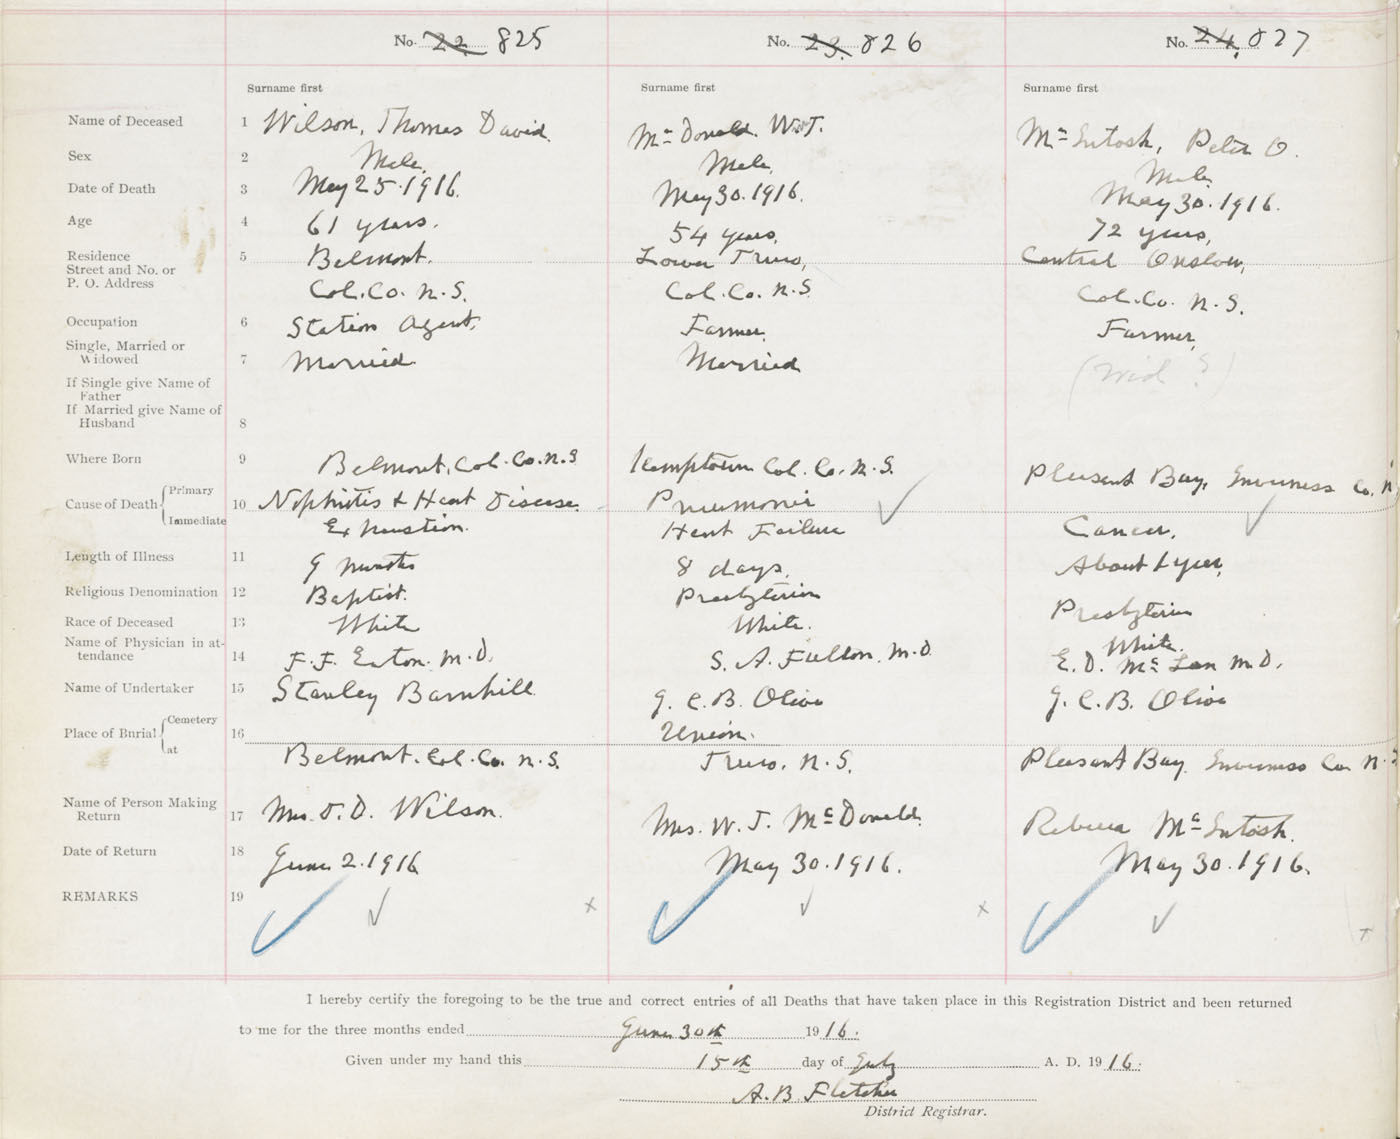 No. 22 825 No. 23. 826 No. 24. 827
Surname first Surname first Surname first
Name of Deceased 1 Wilson, Thomas David. Mc Donald. W.J. Mc Intosh, Peter O.
Sex 2 Male. Male. Male.
Date of Death 3 May 25. 1916. May 30. 1916. May 30. 1916.
Age 4 61 years. 54 years, 72 years,
Residence 5 Belmont. Lower Truro, Central Onslow,
Street and No. or
P. O. Address Col. Co. N. S. Col. Co. N. S. Col. Co. N. S.
Occupation 6 Station Agent. Farmer. Farmer,
Single, Married or
Widowed 7 Married Married (Wid ?)
If Single give Name of
Father
If Married give Name of
Husband 8
Where Born 9 Belmont, Col. Co. N. S Kemptown Col. Co. N. S. Pleasant Bay, Inverness Co. N
Cause of Death Primary 10 Nephritis & Heart Disease. Pneumonia
Immediate Exhaustion. Heart Failure Cancer.
Length of Illness 11 9 months 8 days. About 1 year,
Religious Denomination 12 Baptist. Presbyterian Presbyterian
Race of Deceased 13 White White. White.
Name of Physician in at-
tendance 14 F. F. Eaton. M. D. S. A. Fulton. M. D E. D. Mc Lean M. D.
Name of Undertaker 15 Stanley Barnhill G. C. B. Olive G. C. B. Olive
Place of Burial Cemetery 16 Union.
at Belmont. Col. Co. N. S. Truro. N. S. Pleasant Bay. Inverness Co. N. S
Name of Person Making
Return 17 Mrs. T. D. Wilson. Mrs. W. J. Mc Donald. Rebecca Mc Intosh.
Date of Return 18 June 2. 1916 May 30. 1916. May 30. 1916.
REMARKS 19
I hereby certify the foregoing to be the true and correct entries of all Deaths that have taken place in this Registration District and been returned
to me for the three months ended June 30th 1916.
Given under my hand this 15th day of July A. D. 1916.
A. B Fletcher
District Registrar.